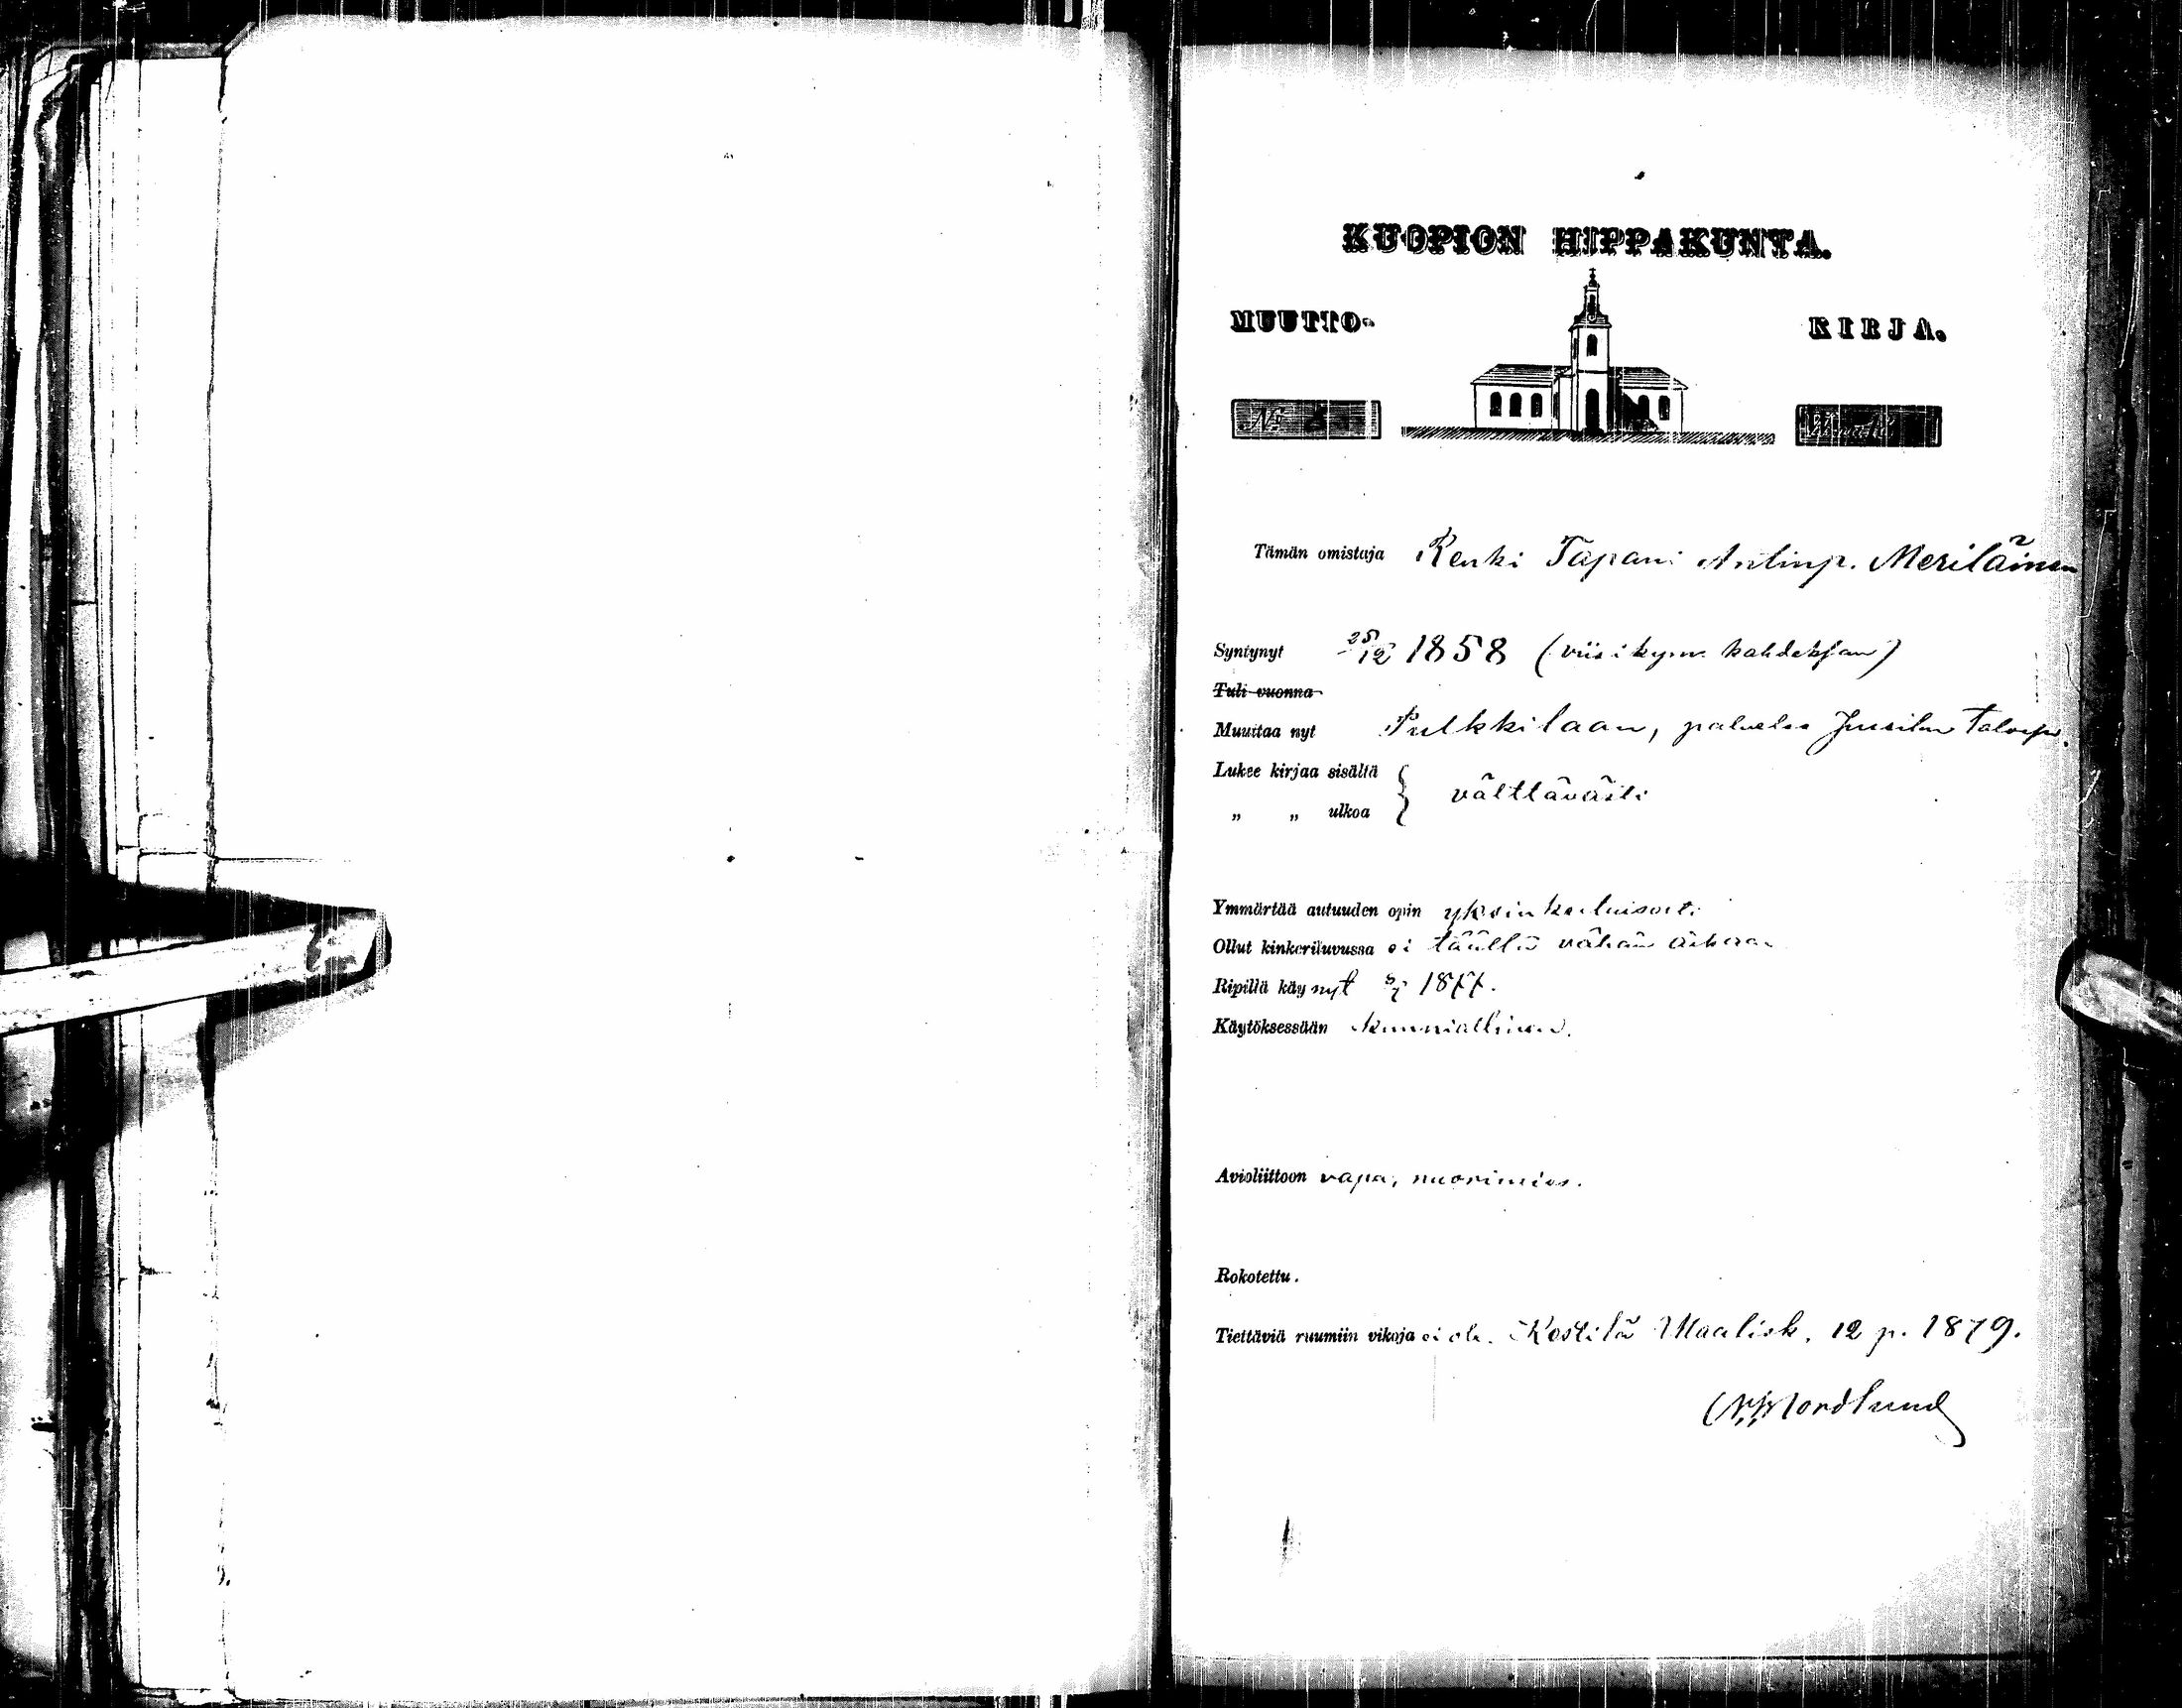 KUOPION HIPPAKUNTA.
MUUTTO- KIRJA.
№
Tämän omistaja Renki Tapani Antinp. Meriläinen
Syntynyt 25/12 1858 (viisikymm. kahdeksan)
Tuli vuonna
Muuttaa nyt Pulkkilaan, palvelee Jussilan talossa.
Lukee kirjaa sisältä } välttävästi
„ „ ulkoa
Ymmärtää autuuden opin yksinkertaisesti
Ollut kinkeriluvussa ei täällä vähään aikaan
Ripillä käynyt 8/7 1877.
Käytöksessään kunniallinen.
Avioliittoon vapa, nuorimies.
Rokotettu.
Tiettäviä ruumiin vikoja ei ole. Kestilä Maalisk. 12 p. 1879.
Nordlund